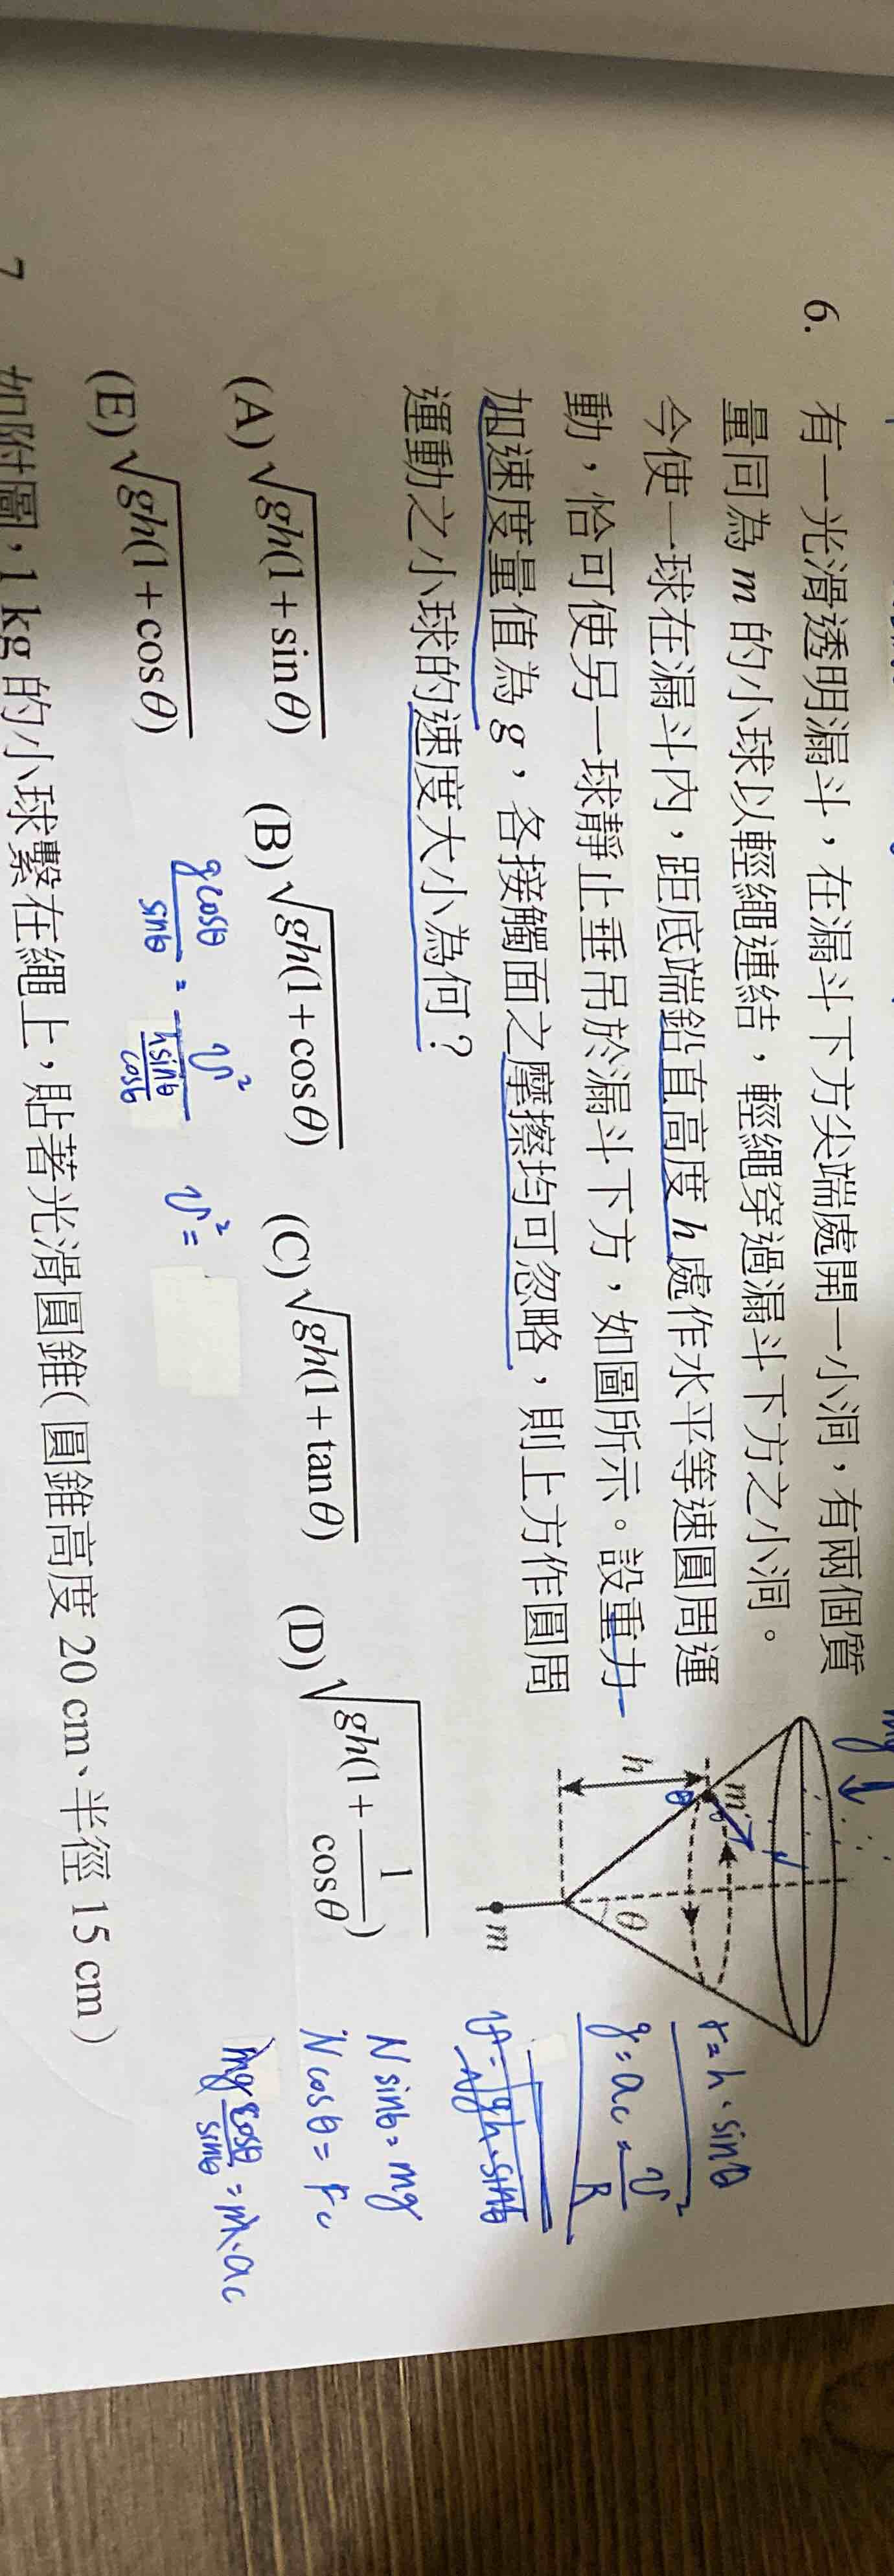 6. 有一光滑透明漏斗，在漏斗下方尖端處開一小洞，有兩個質
量同為 m 的小球以輕繩連結，輕繩穿過漏斗下方之小洞。
今使一球在漏斗內，距底端鉛直高度 h 處作水平等速圓周運
動，恰可使另一球靜止垂吊於漏斗下方，如圖所示。設重力
加速度量值為 g，各接觸面之摩擦均可忽略，則上方作圓周
運動之小球的速度大小為何？
(A) √gh(1+sinθ) (B) √gh(1+cosθ) (C) √gh(1+tanθ) (D) √gh(1+1/cosθ)
(E) √gh(1+cosθ)
mg
N
m
h
θ
θ
m
r=h·sinθ
g=ac=v²/R
v=√gh·sinθ
N sinθ=mg
N cosθ=Fc
mg cosθ/sinθ=m·ac
gcosθ/sinθ = v²/(hsinθ/cosθ) v²=
7 如附圖，1 kg 的小球繫在繩上，貼著光滑圓錐(圓錐高度 20 cm、半徑 15 cm)